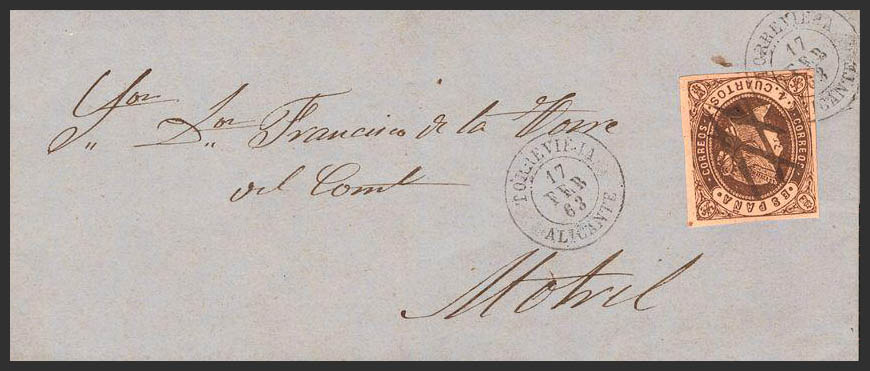 Sor. Dn. Francisco de la Torre
del Com.
Motril
TORREVIEJA
17
FEB
63
ALICANTE
TORREVIEJA
17
FEB
63
ALICANTE
4. CUARTOS.
CORREOS
CORREOS
ESPAÑA